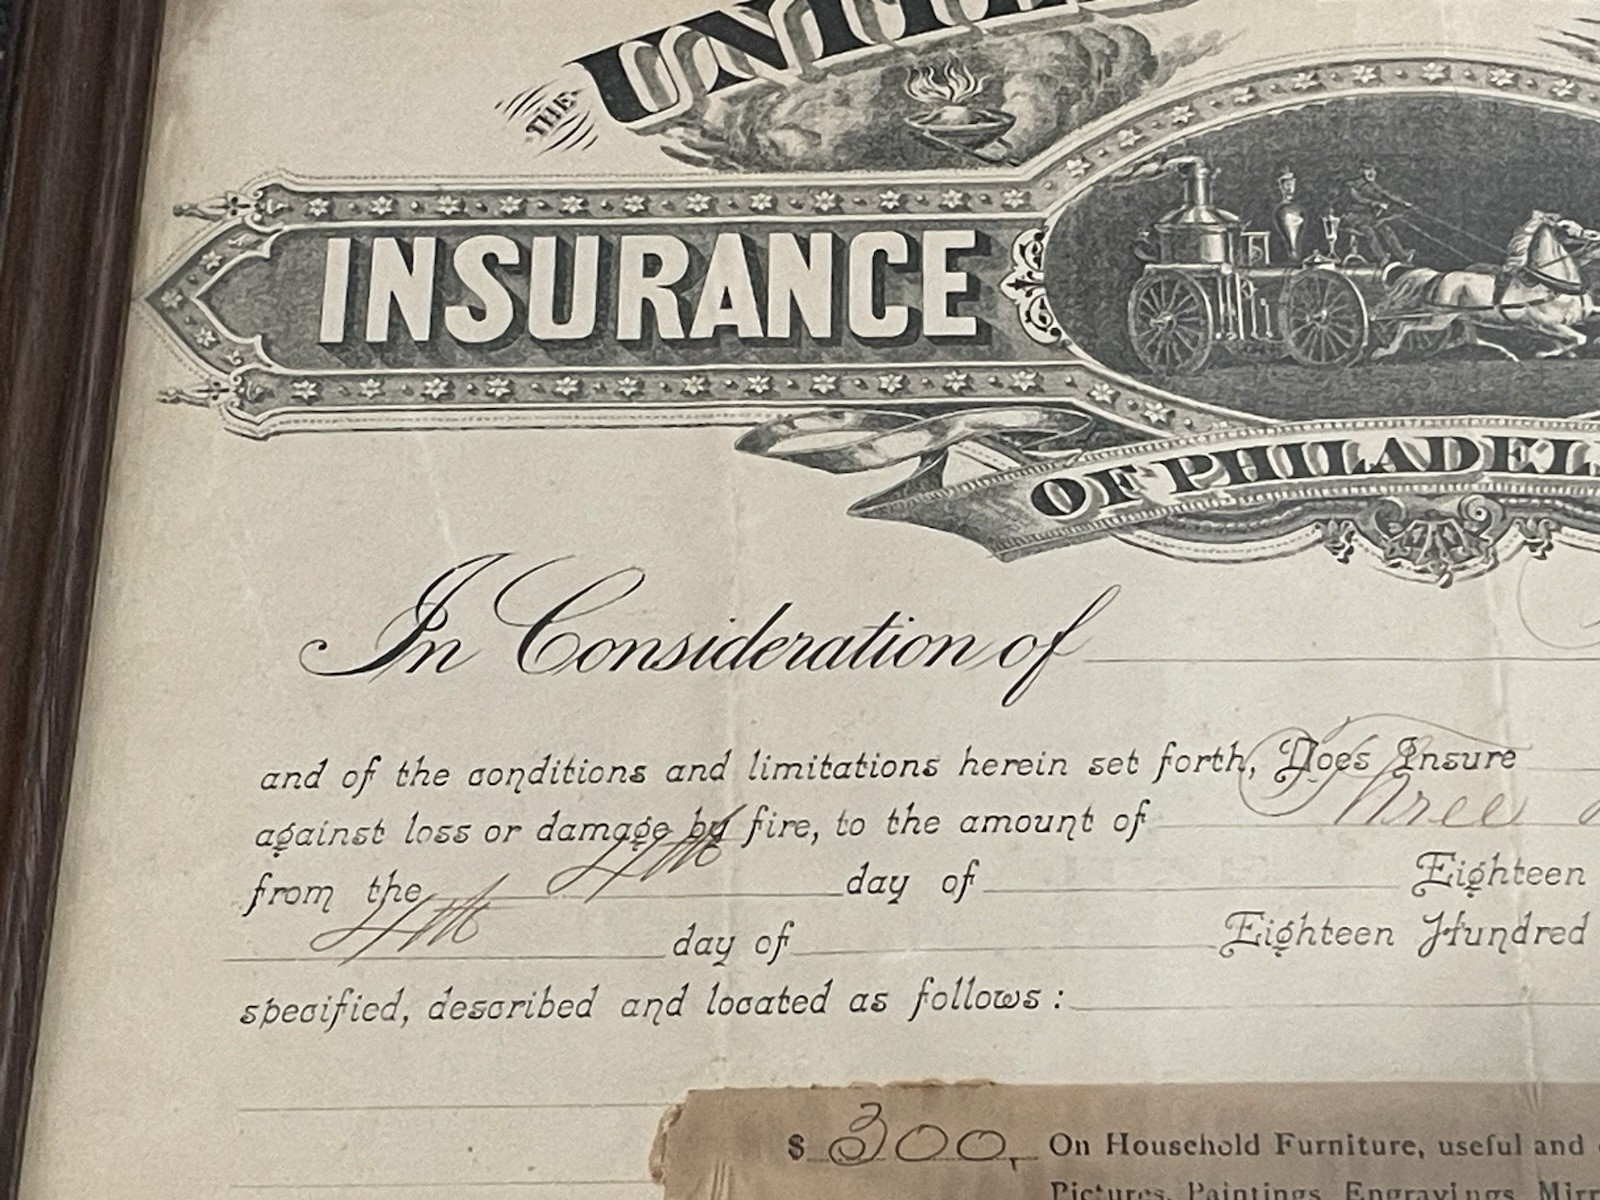 THE
INSURANCE
OF
In Consideration of
and of the conditions and limitations herein set forth, Does Insure
against loss or damage by fire, to the amount of Three
from the day of Eighteen
day of Eighteen Hundred
specified, described and located as follows :
$ 300, On Household Furniture, useful and
Pictures, Paintings, Engravings,